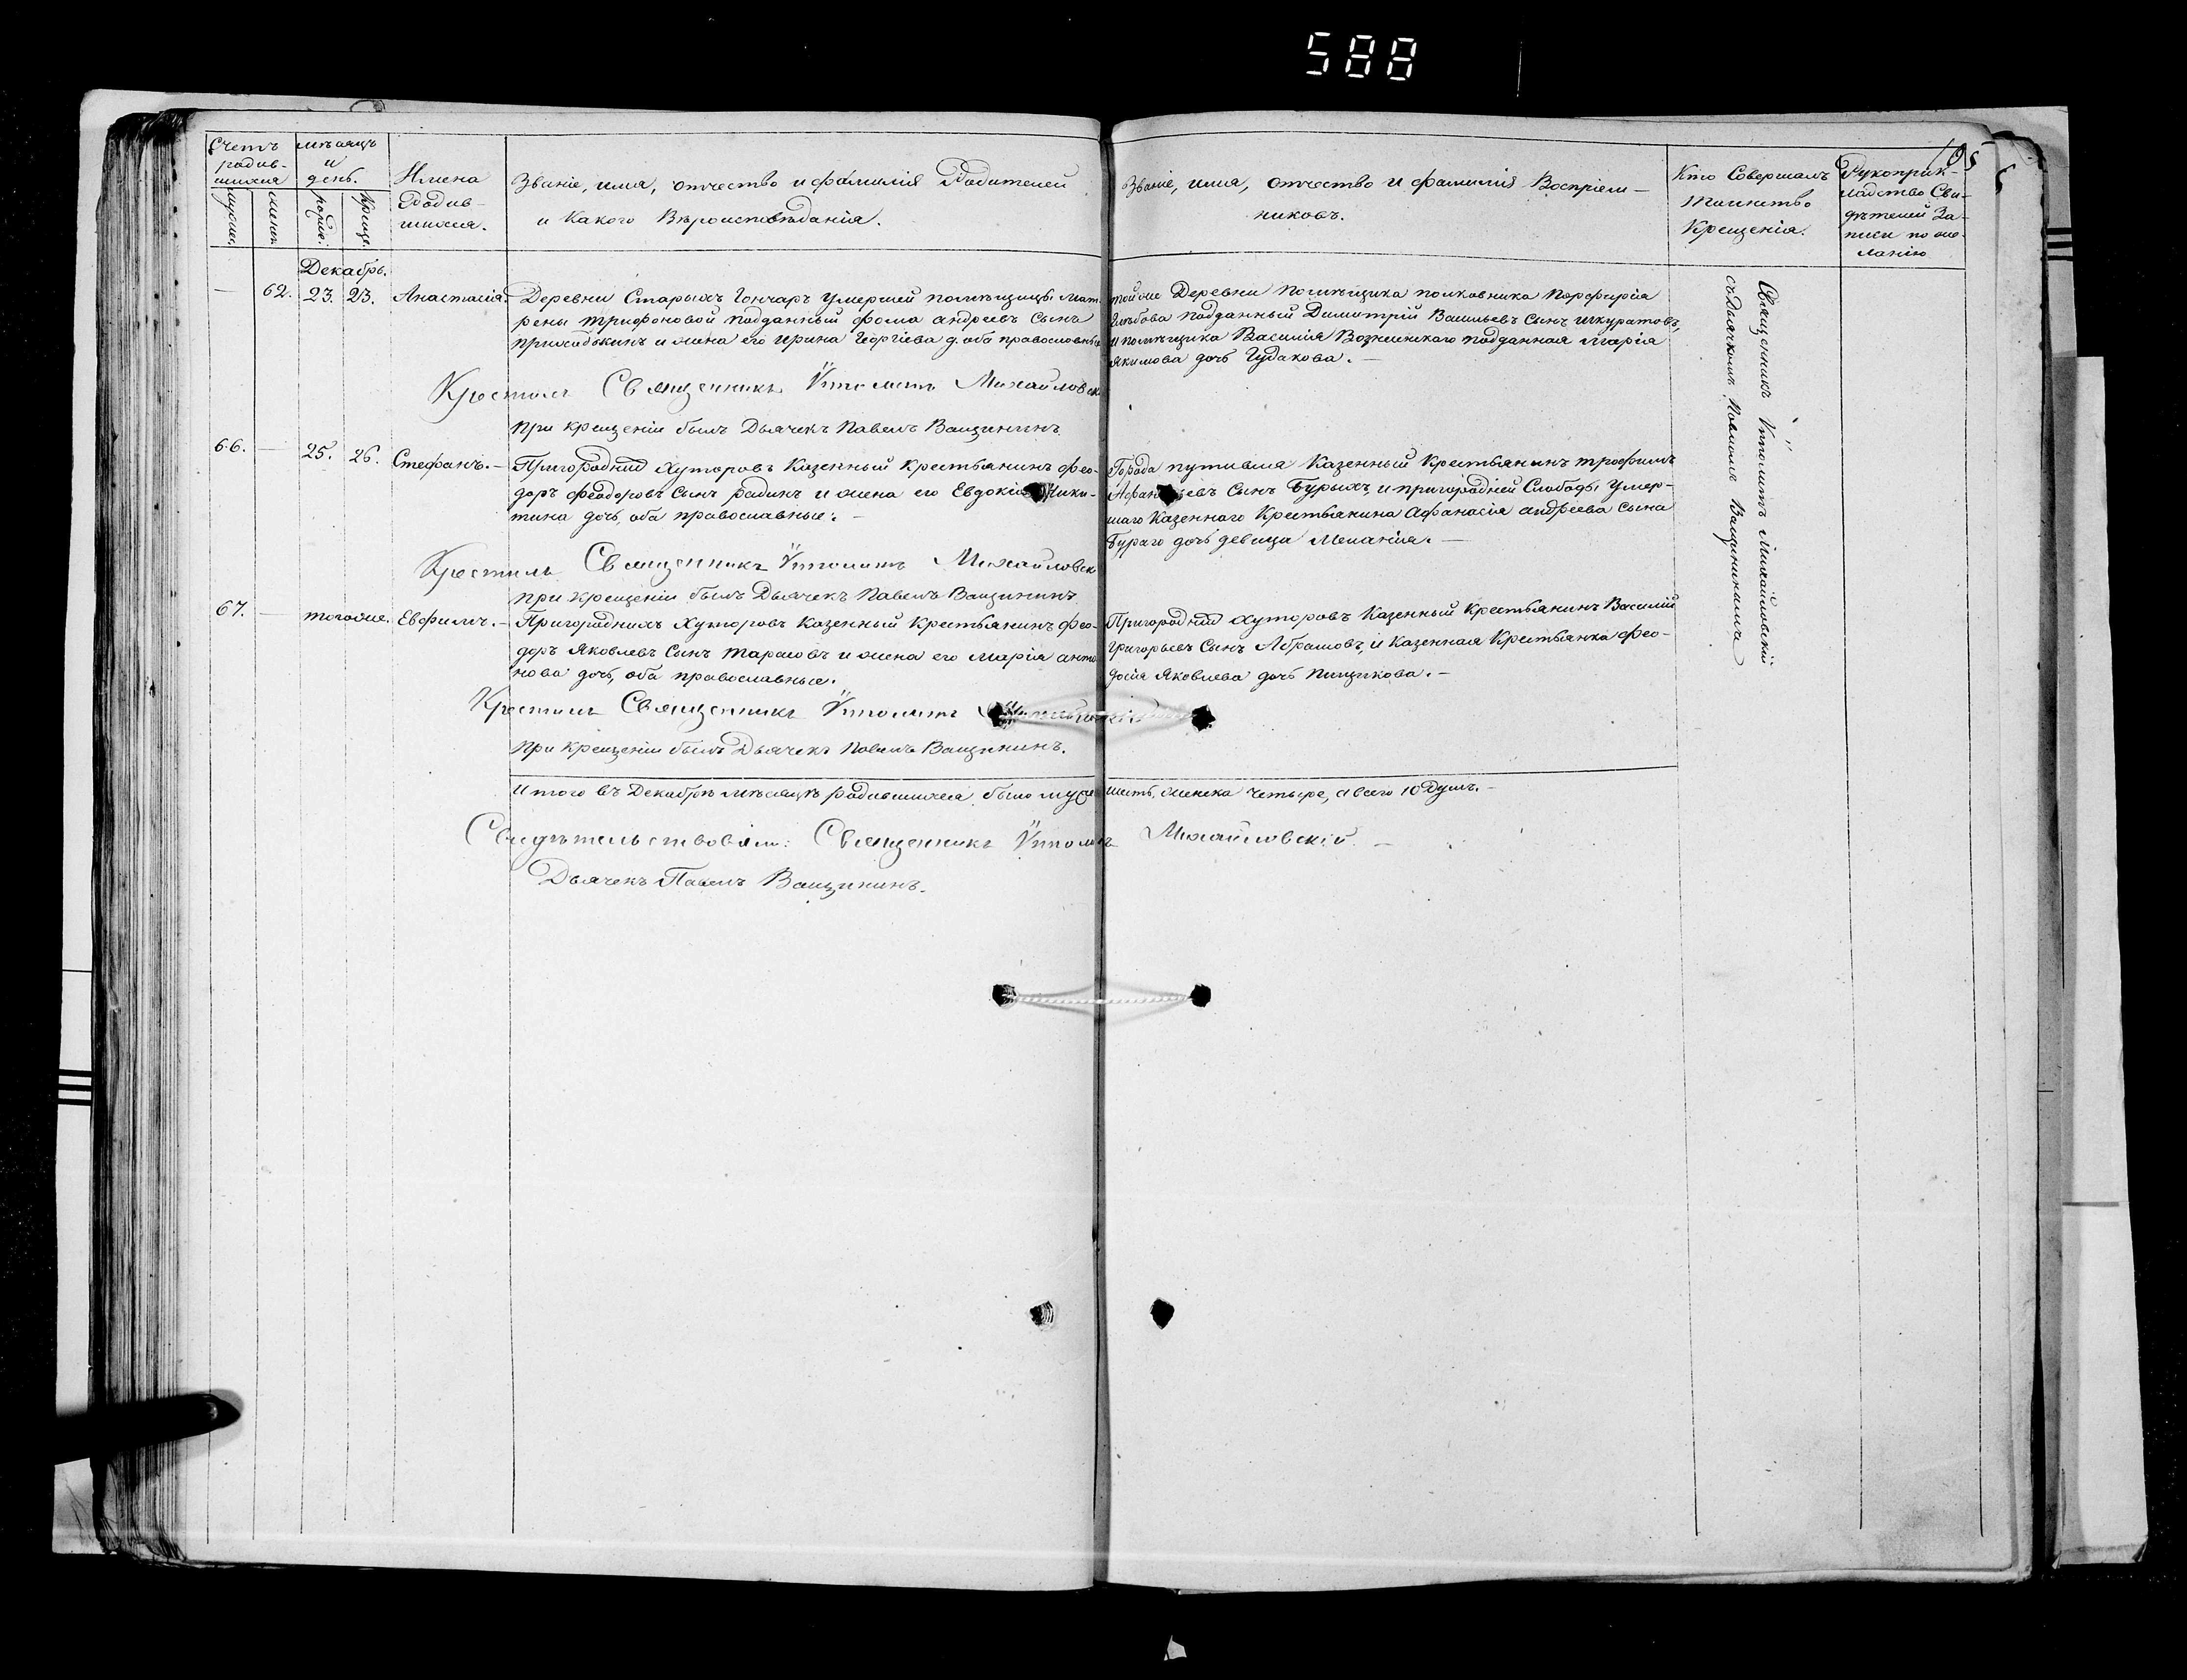 588
105
Счетъ родив-шихся
мужес.
женск.
мѣсяцъ и день.
рожде.
крище.
Имена Родив-шихся.
Званіе, имя, отчество и фамилія Родителей
и Какого Вѣроисповѣданія.
Званіе, имя, отчество и фамилія Воспріем-
никовъ.
Кто Совершалъ
Таинство
Крещенія.
Рукоприк-
ладство Сви-
дѣтелей За-
писи по же-
ланію
Декабрь.
— 62. 23. 23. Анастасія. Деревни Старыхъ Гончаръ умершей помѣщицы Мат-
рены Трифоновой подданный Фома Андреевъ сынъ
и жена его Ирина Георгіева д. оба православные
тойже Деревни помѣщика полковника Порфирія
Глѣбова подданный Димитрій Васильевъ Сынъ Шкуратовъ,
и помѣщика Василія Вознесинскаго подданная Марія
Якимова дочь Гудакова. —
Крестилъ Священникъ Ѵпполитъ Михайловск
при крещеніи былъ Дьячекъ Павелъ Ващининъ.
66. — 25. 26. Стефанъ. — Пригородних Хуторовъ Казенный крестьянинъ Фео-
доръ Феодоровъ Сынъ Радинъ и жена его Евдокія Ники-
тина дочь, оба православные. —
Города Путивля Казенный Крестьянинъ Трофимъ
Афанасьевъ Сынъ Бурыхъ, и пригородней Слободы умер-
шаго Казеннаго Крестьянина Афанасія Андреева Сына
Бураго дочь девица Меланія. —
Крестилъ Священникъ Ѵпполитъ Михайловск
при крещеніи былъ Дьячекъ Павелъ Ващининъ
67. — тогоже. Евфимъ. — Пригороднихъ Хуторовъ Казенный Крестьянинъ Фео-
доръ Яковлевъ Сынъ Тарасовъ и жена его Марія Анто
нова дочь, оба православные.
Пригородних Хуторовъ Казенный Крестьянинъ Василій
Григорьевъ Сынъ Абрамовъ, и казенная Крестьянка Фео-
досія Яковлева дочь Пищикова. —
Крестилъ Священникъ Ѵпполитъ
при Крещеніи былъ Дьячекъ Павелъ Ващининъ.
Итого въ Декабрѣ мѣсяцѣ родившихся было муже шесть, женска четыре, а всего 10 Душъ. —
Свидѣтельствовали: Священникъ Ѵпполитъ Михайловскій. —
Дьячекъ Павелъ Ващининъ.
Священникъ Ѵпполитъ Михайловскій
съ Дьячкомъ Павломъ Ващининымъ